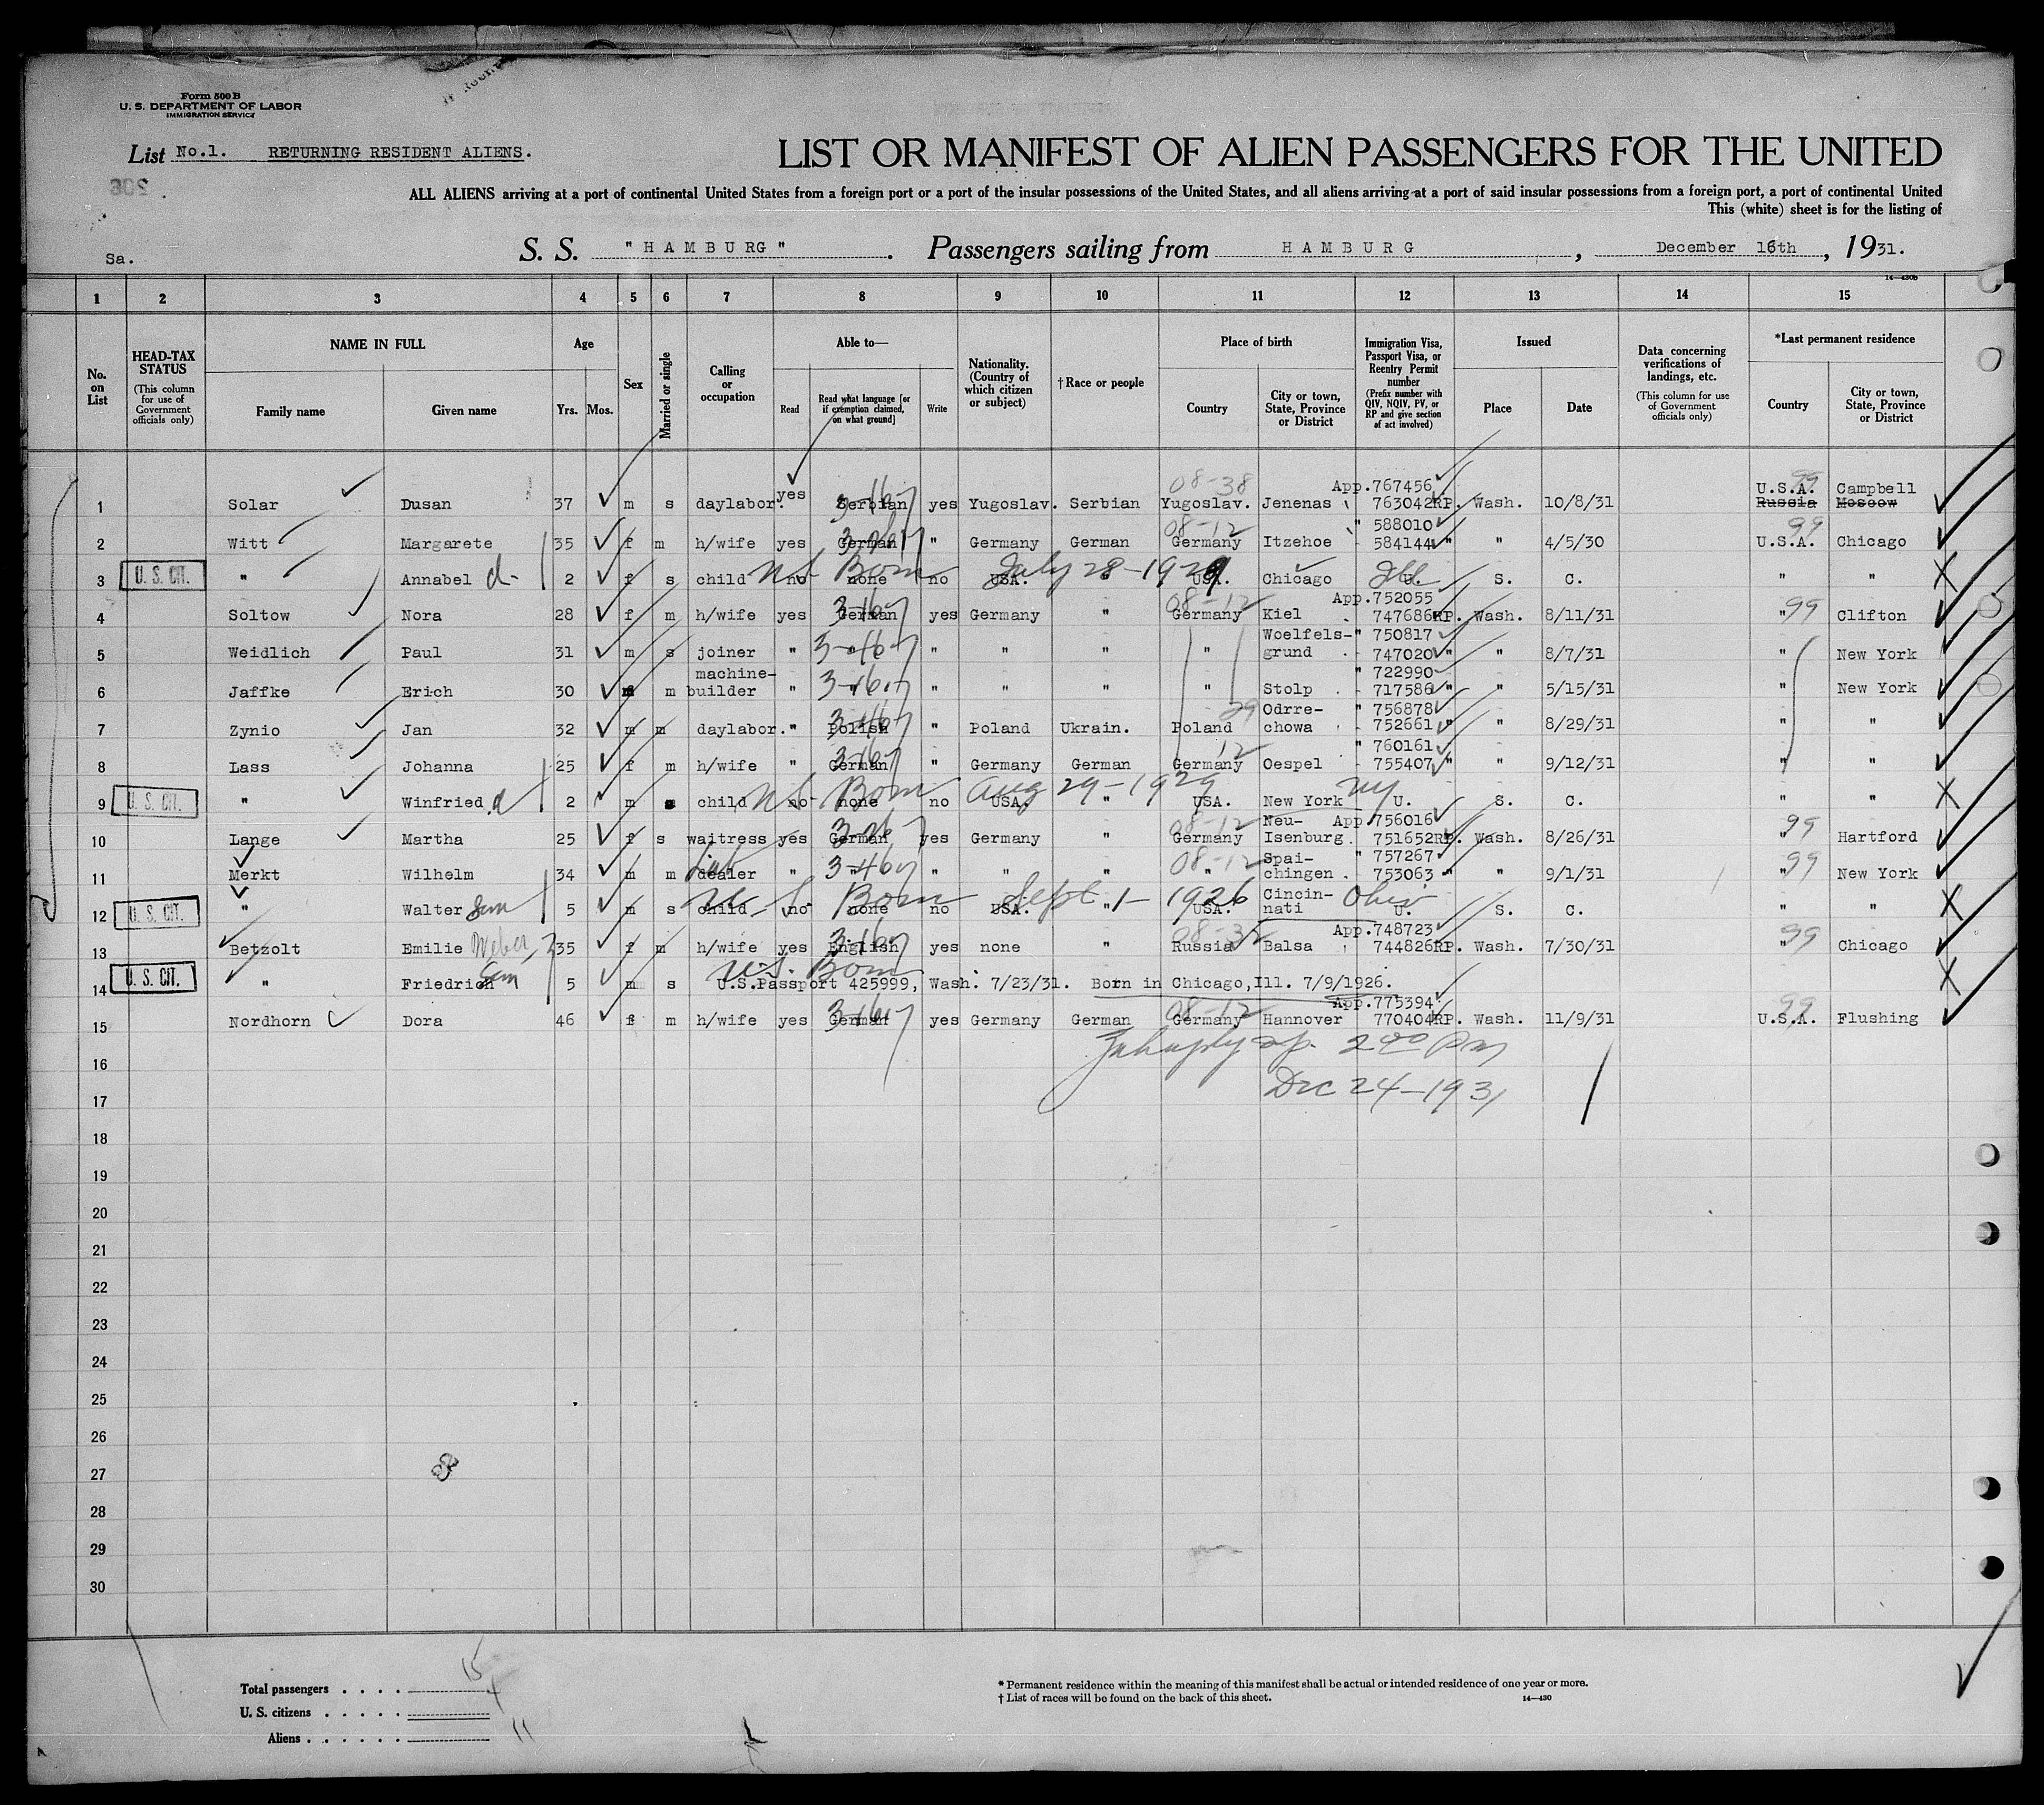 Form 500 B
U. S. DEPARTMENT OF LABOR
IMMIGRATION SERVICE
List No.1. RETURNING RESIDENT ALIENS.
LIST OR MANIFEST OF ALIEN PASSENGERS FOR THE UNITED
ALL ALIENS arriving at a port of continental United States from a foreign port or a port of the insular possessions of the United States, and all aliens arriving at a port of said insular possessions from a foreign port, a port of continental United
This (white) sheet is for the listing of
Sa.
S. S. "HAMBURG". Passengers sailing from HAMBURG, December 16th, 1931.
14—430b
1 2 3 4 5 6 7 8 9 10 11 12 13 14 15
No. on List
HEAD-TAX STATUS (This column for use of Government officials only)
NAME IN FULL
Family name
Given name
Age
Yrs. Mos.
Sex
Married or single
Calling or occupation
Able to—
Read
Read what language [or if exemption claimed, on what ground]
Write
Nationality. (Country of which citizen or subject)
†Race or people
Place of birth
Country
City or town, State, Province or District
Immigration Visa, Passport Visa, or Reentry Permit number (Prefix number with QIV, NQIV, PV, or RP and give section of act involved)
Issued
Place
Date
Data concerning verifications of landings, etc. (This column for use of Government officials only)
*Last permanent residence
Country
City or town, State, Province or District
08-38 App.767456 99 U.S.A. Campbell
1 Solar Dusan 37 m s daylabor. yes Serbian 3-16-7 yes Yugoslav. Serbian Yugoslav. Jenenas 763042RP. Wash. 10/8/31 Russia Moscow
08-12 " 588010 99
2 Witt Margarete 35 f m h/wife yes German " Germany German Germany Itzehoe 584144 " " 4/5/30 U.S.A. Chicago
3 U. S. CIT. " Annabel d- 2 f s child no none no USA. US Born July 28-1929 USA. Chicago Ill U. S. C. " "
08-12 App.752055 99
4 Soltow Nora 28 f m h/wife yes German 3-16-7 yes Germany " Germany Kiel 747686RP. Wash. 8/11/31 " Clifton
Woelfels- " 750817
5 Weidlich Paul 31 m s joiner " " " " " " grund 747020 " " 8/7/31 " New York
machine- " 722990
6 Jaffke Erich 30 m m builder " 3-16-7 " " " " Stolp 717586 " " 5/15/31 " New York
29 Odrre- " 756878
7 Zynio Jan 32 m m daylabor. " Polish " Poland Ukrain. Poland chowa 752661 " " 8/29/31 " "
12 " 760161
8 Lass Johanna 25 f m h/wife " German 3-16-7 " Germany German Germany Oespel 755407 " " 9/12/31 " "
9 U. S. CIT. " Winfried d 2 m s child no none no USA. US Born Aug 29-1929 " USA. New York NY U. S. C. " "
08-12 Neu- App.756016 99
10 Lange Martha 25 f s waitress yes German yes Germany " Germany Isenburg 751652RP. Wash. 8/26/31 " Hartford
08-12 Spai- " 757267 99
11 Merkt Wilhelm 34 m m dealer " " " " " " chingen 753063 " " 9/1/31 " New York
Cincin- Ohio
12 U. S. CIT. " Walter Son 5 m s child no none no USA. U S Born Sept 1-1926 " USA. nati U. S. C. " "
08-32 App.748723 99
13 Betzolt Emilie Weber 35 f m h/wife yes English 3-16-7 yes none " Russia Balsa 744826RP. Wash. 7/30/31 " Chicago
U.S. Born
14 U. S. CIT. " Friedrich Son 5 m s U.S.Passport 425999, Wash. 7/23/31. Born in Chicago,Ill. 7/9/1926.
08-12 App.775394 99
15 Nordhorn Dora 46 f m h/wife yes German 3-16-7 yes Germany German Germany Hannover 770404RP. Wash. 11/9/31 U.S.A. Flushing
2 00 PM
16
Dec 24-1931
17
18
19
20
21
22
23
24
25
26
27
28
29
30
Total passengers . . . . 15
U. S. citizens . . . . . 4
Aliens . . . . . . 11
* Permanent residence within the meaning of this manifest shall be actual or intended residence of one year or more.
† List of races will be found on the back of this sheet. 14—430